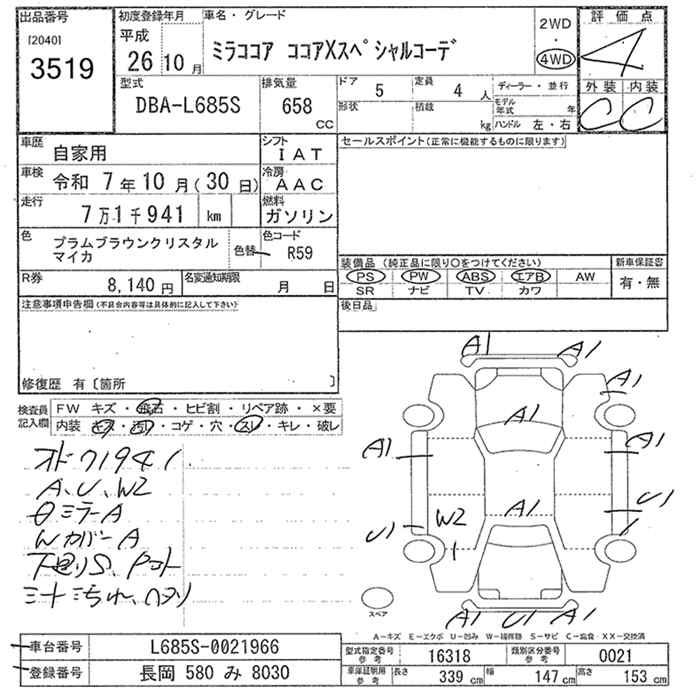 出品番号
[2040]
3519
初度登録年月
平成
26 10 月
車名・グレード
ミラココア ココアXスペシャルコーデ
2WD
・
4WD
評価点
4
外装 内装
C C
型式
DBA-L685S
排気量
658
CC
ドア 5
定員 4 人
形状
積載
kg
ディーラー・並行
モデル年式 年
ハンドル 左・右
車歴 自家用
シフト IAT
車検 令和 7年 10月 (30日)
冷房 AAC
走行 7万1千941 km
燃料 ガソリン
色 プラムブラウンクリスタル
マイカ
色替
色コード R59
R券 8,140円
名変通知期限 月 日
セールスポイント(正常に機能するものに限ります)
装備品 (純正品に限り○をつけてください)
PS PW ABS エアB AW
SR ナビ TV カワ
新車保証書
有・無
後日品
注意事項申告欄(不具合内容等は具体的に記入して下さい)
修復歴 有〔箇所 〕
検査員
記入欄
FW キズ・飛石・ヒビ割・リペア跡・×要
内装 キズ・汚れ・コゲ・穴・スレ・キレ・破レ
A、U、W2
ミラーA
WカバーA
A1 A1
A1
A1
A1 A1
A1
U1
W2
U1
A1 U1 A1
スペア
A-キズ E-エクボ U-凹み W-補修跡 S-サビ C-腐食 XX-交換済
車台番号 L685S-0021966
登録番号 長岡 580 み 8030
型式指定番号
参考
16318
類別区分番号
参考
0021
車庫証明用
参考
長さ 339 cm
幅 147 cm
高さ 153 cm